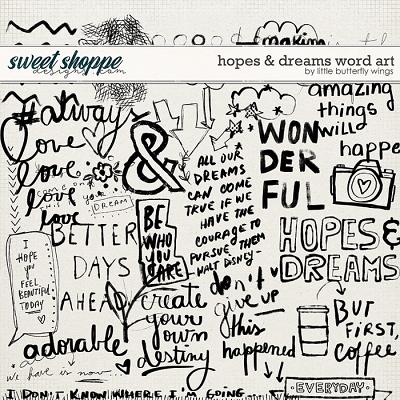 sweet shoppe
designs.com
hopes & dreams word art
by little butterfly wings
making
amazing
things
will
happe
#always
love
love
love
love
&
you
DREAM
WON
DER
FUL
ALL OUR
DREAMS
CAN COME
TRUE IF WE
HAVE THE
COURAGE TO
PURSUE THEM
-WALT DISNEY-
BE
WHO
YOU
ARE
HOPES &
DREAMS
BETTER
DAYS
AHEAD
I
HOPE
YOU
FEEL
BEAUTIFUL
TODAY
create
your
own
destiny
don't
give up
this
happened
BUT
FIRST,
coffee
adorable
we have is now
EVERYDAY
I DON'T KNOW WHERE I'M GOING